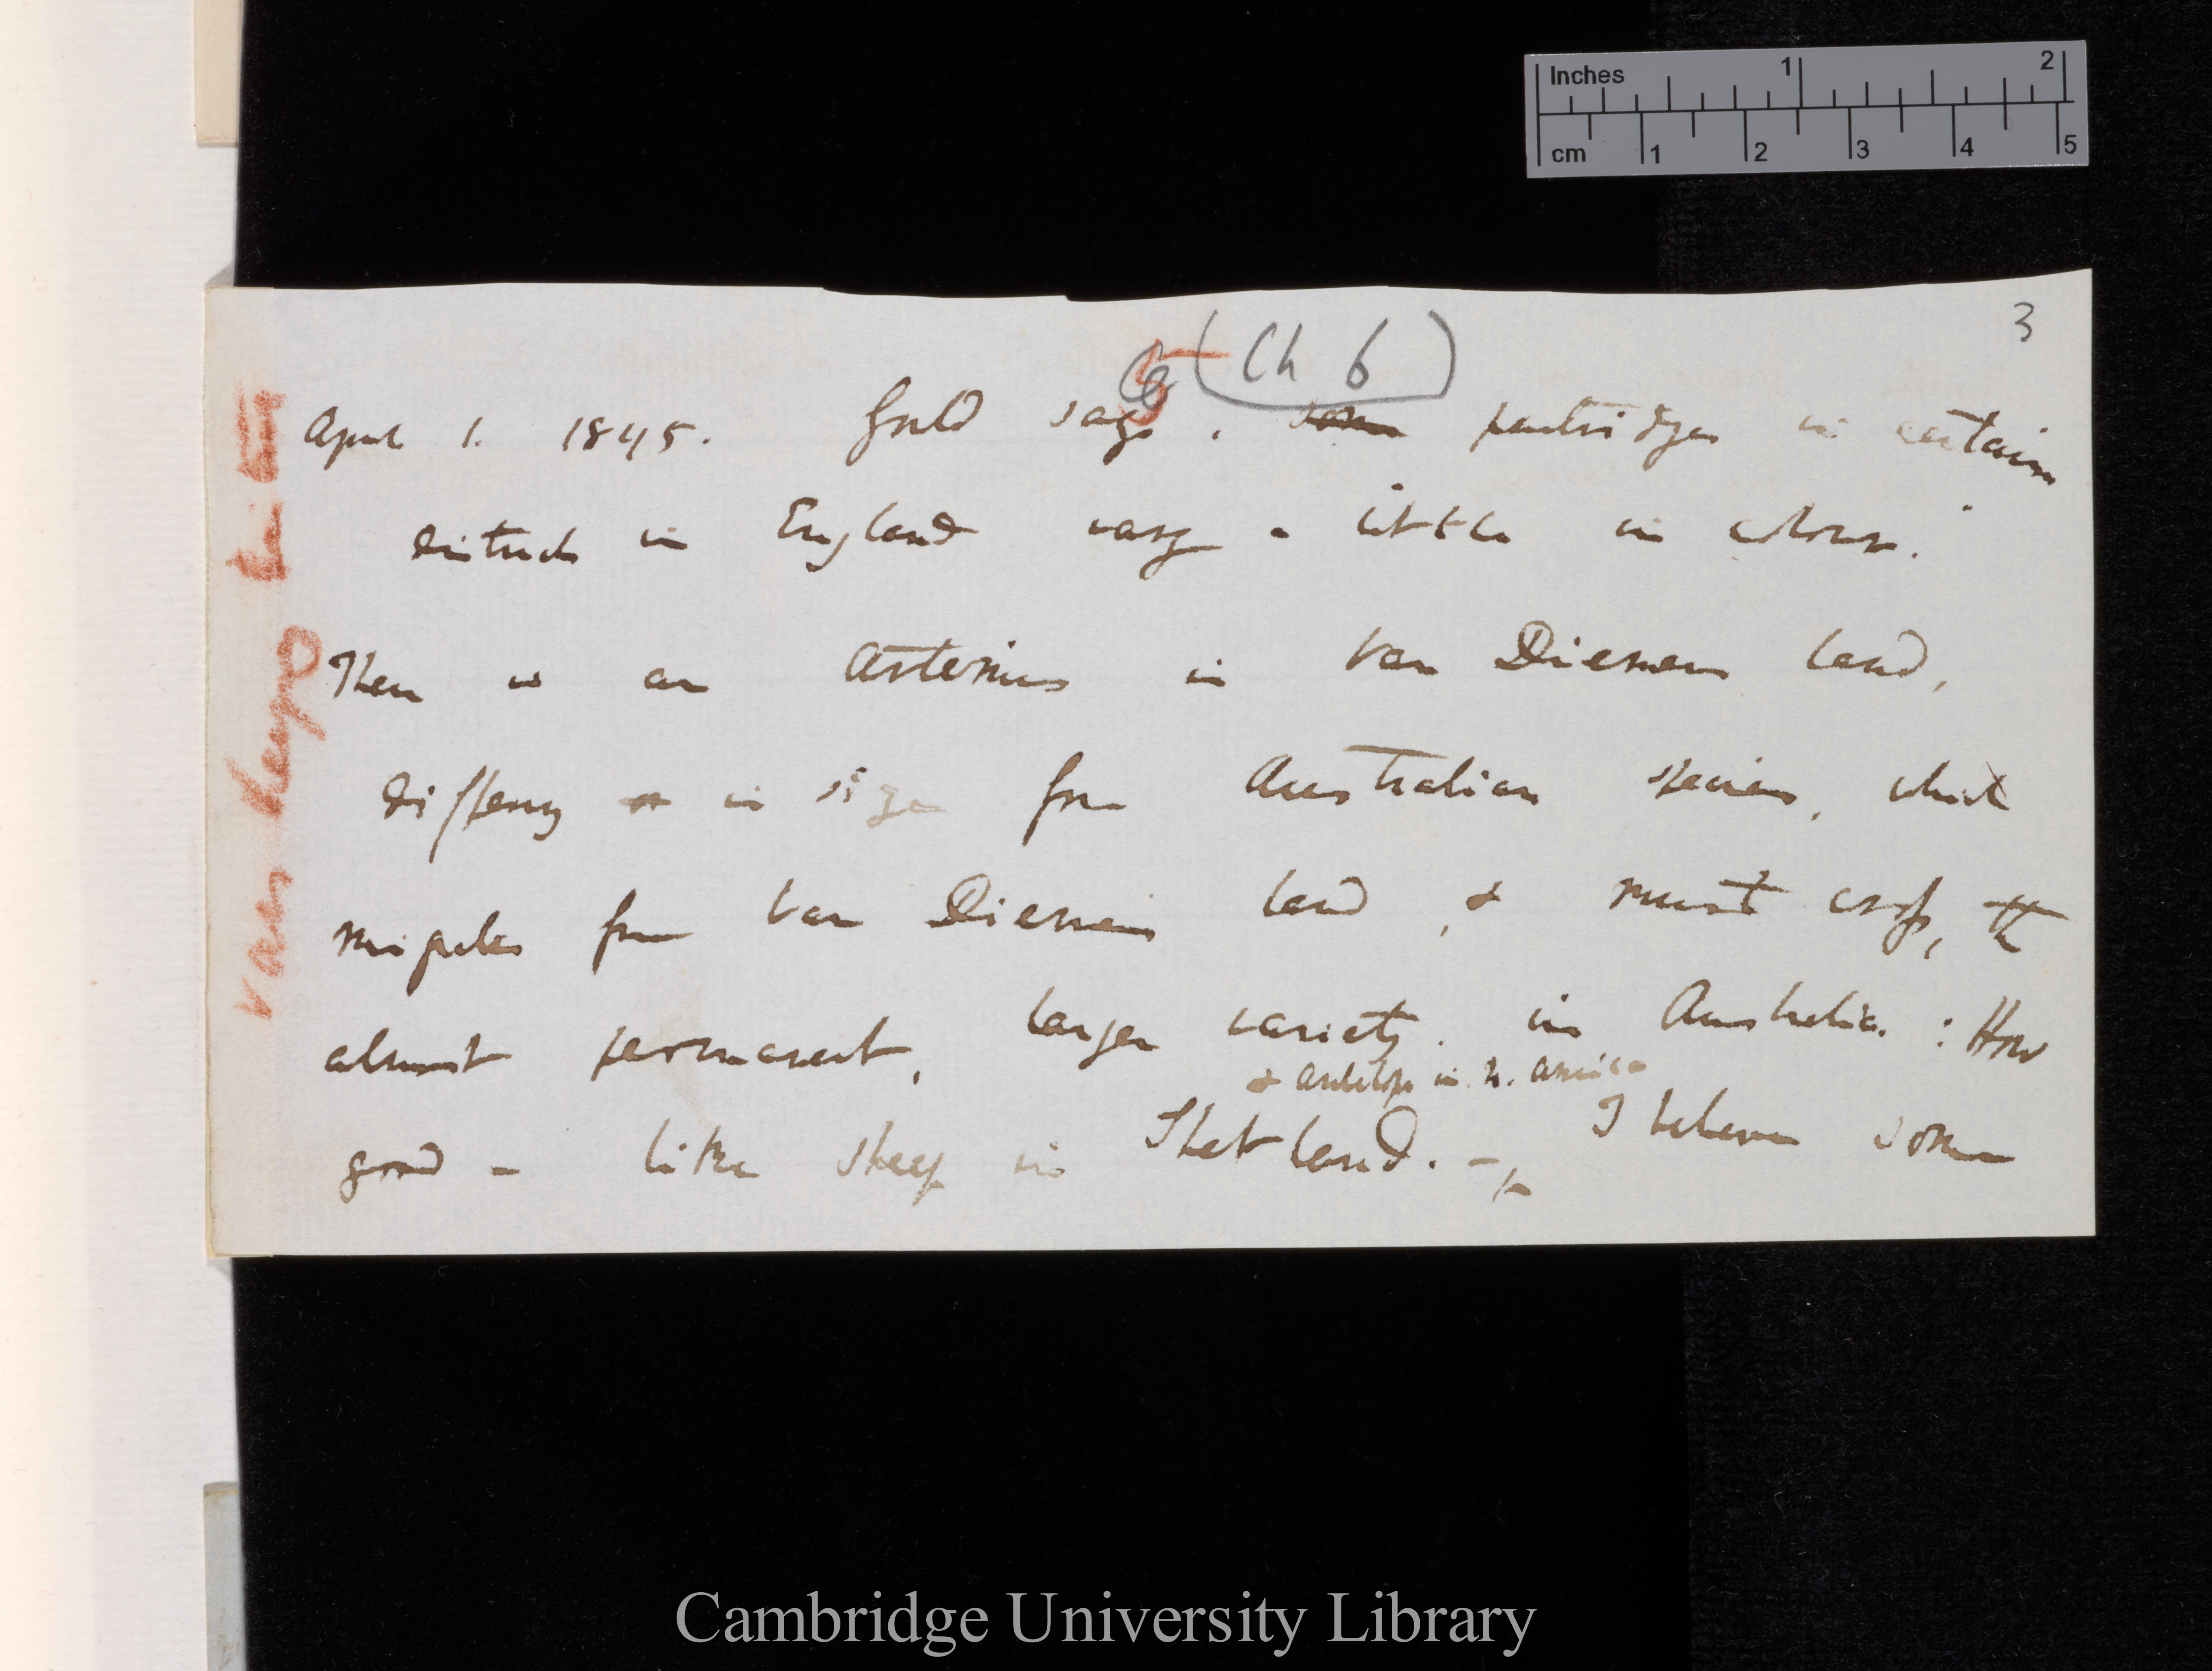 Inches 1 2
cm 1 2 3 4 5
3
(Ch 6)
April 1. 1845. Gould says, some partridges in certain
districts in England vary a little in colour.
There is an Artemus in Van Diemens land,
differing in size from Australian species, which
migrates from Van Diemens land, & must cross, the
almost permanent, larger variety. in Australia. : How
& antelope in N. America
good - like sheep in Shetland. - I believe some
Cambridge University Library